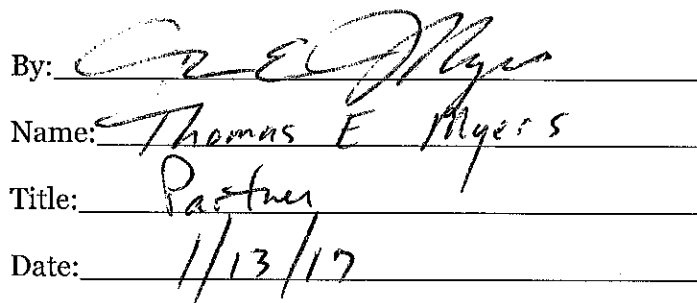 By:
Name: Thomas E Myers
Title: Partner
Date: 1/13/17